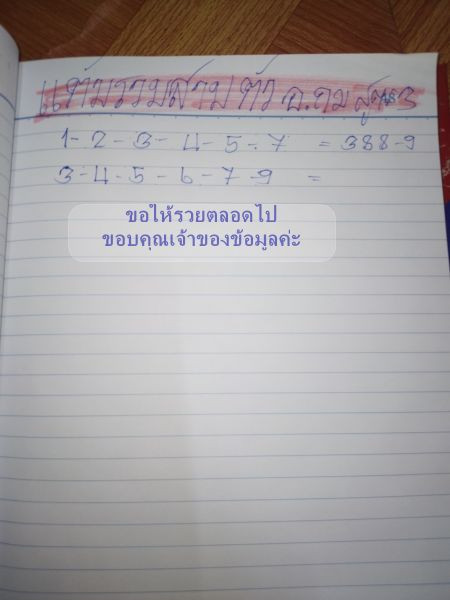 แต้มรวมสามตัว อ.ถม สูตร 3
1-2-3-4-5-7 = 388-9
3-4-5-6-7-9 =
ขอให้รวยตลอดไป
ขอบคุณเจ้าของข้อมูลค่ะ